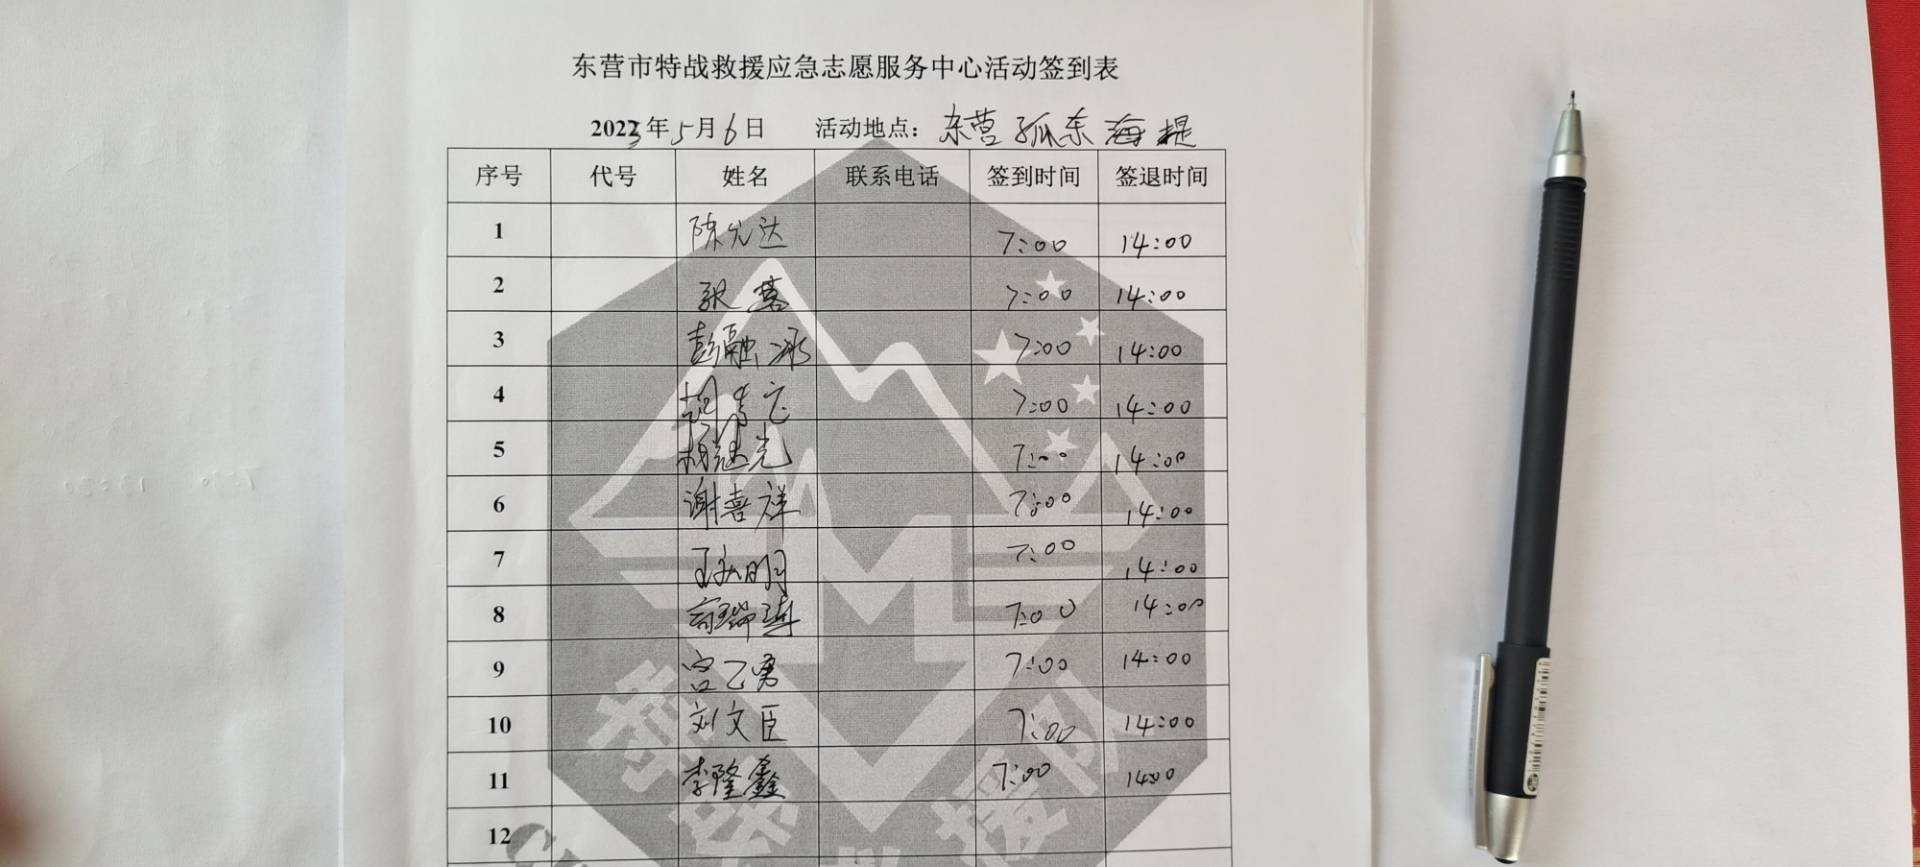 东营市特战救援应急志愿服务中心活动签到表
2023年5月6日 活动地点：东营孤东海堤
序号 代号 姓名 联系电话 签到时间 签退时间
1 陈允达 7:00 14:00
2 张营 7:00 14:00
3 彭融冰 7:00 14:00
4 7:00 14:00
5 杨继光 7:00 14:00
6 谢喜祥 7:00 14:00
7 明 7:00 14:00
8 瑞 7:00 14:00
9 宫乙勇 7:00 14:00
10 刘文臣 7:00 14:00
11 李隆鑫 7:00 14:00
12